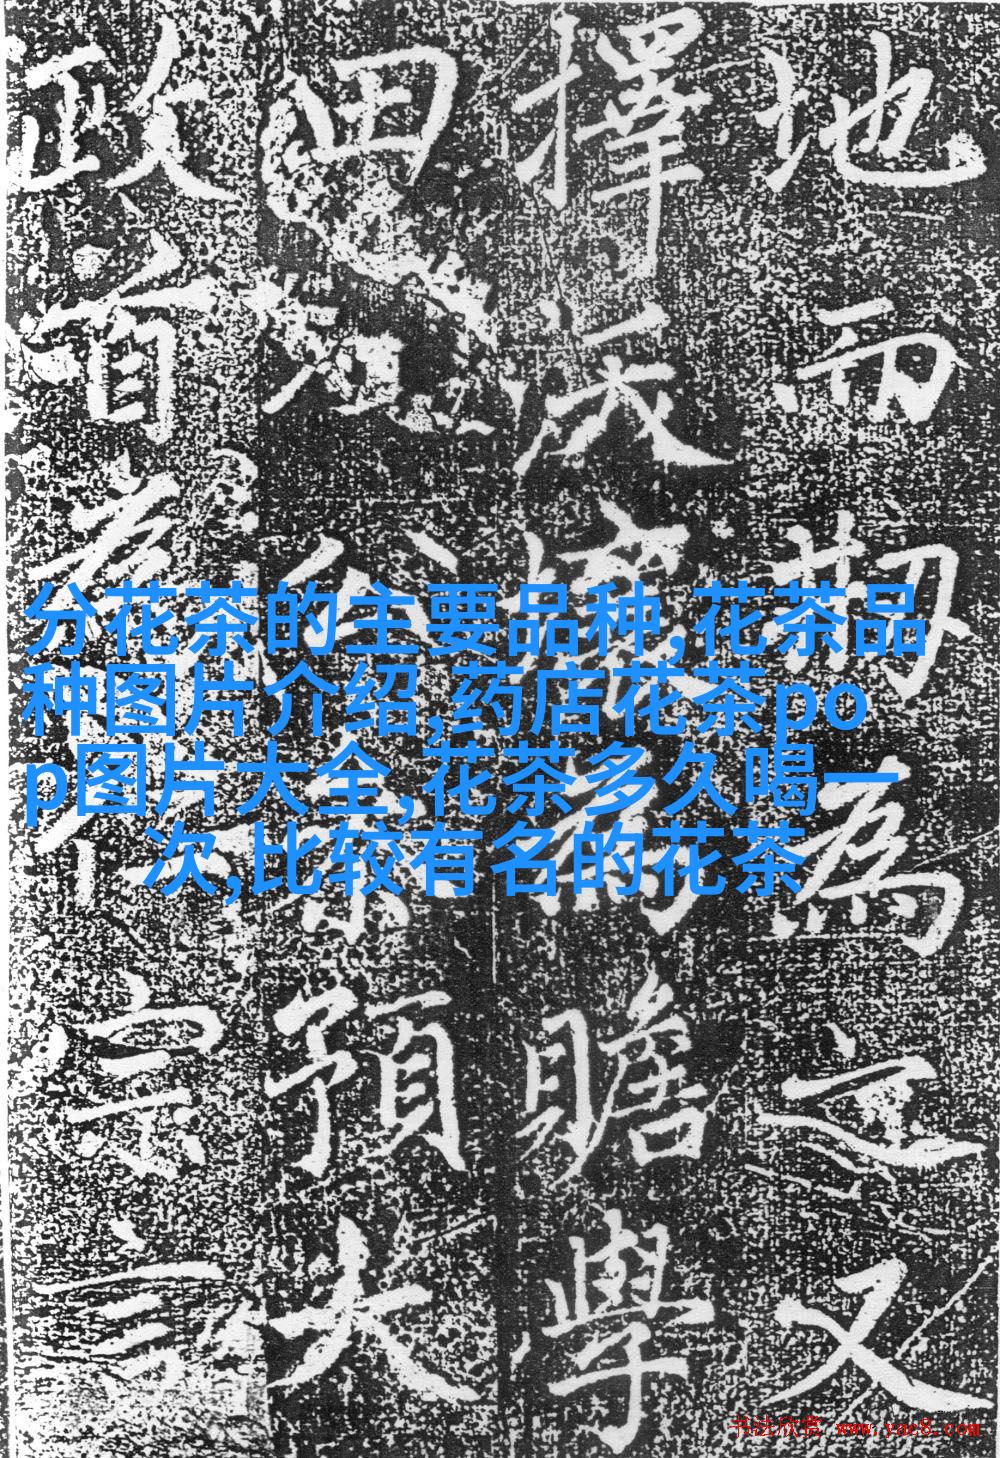 地而刱為之又
擇沃壤為贍學
田江公預大
政首為宗言
分花茶的主要品种,花茶品
种图片介绍,药店花茶po
p图片大全,花茶多久喝一
次,比较有名的花茶
书法欣赏 www.yac8.com